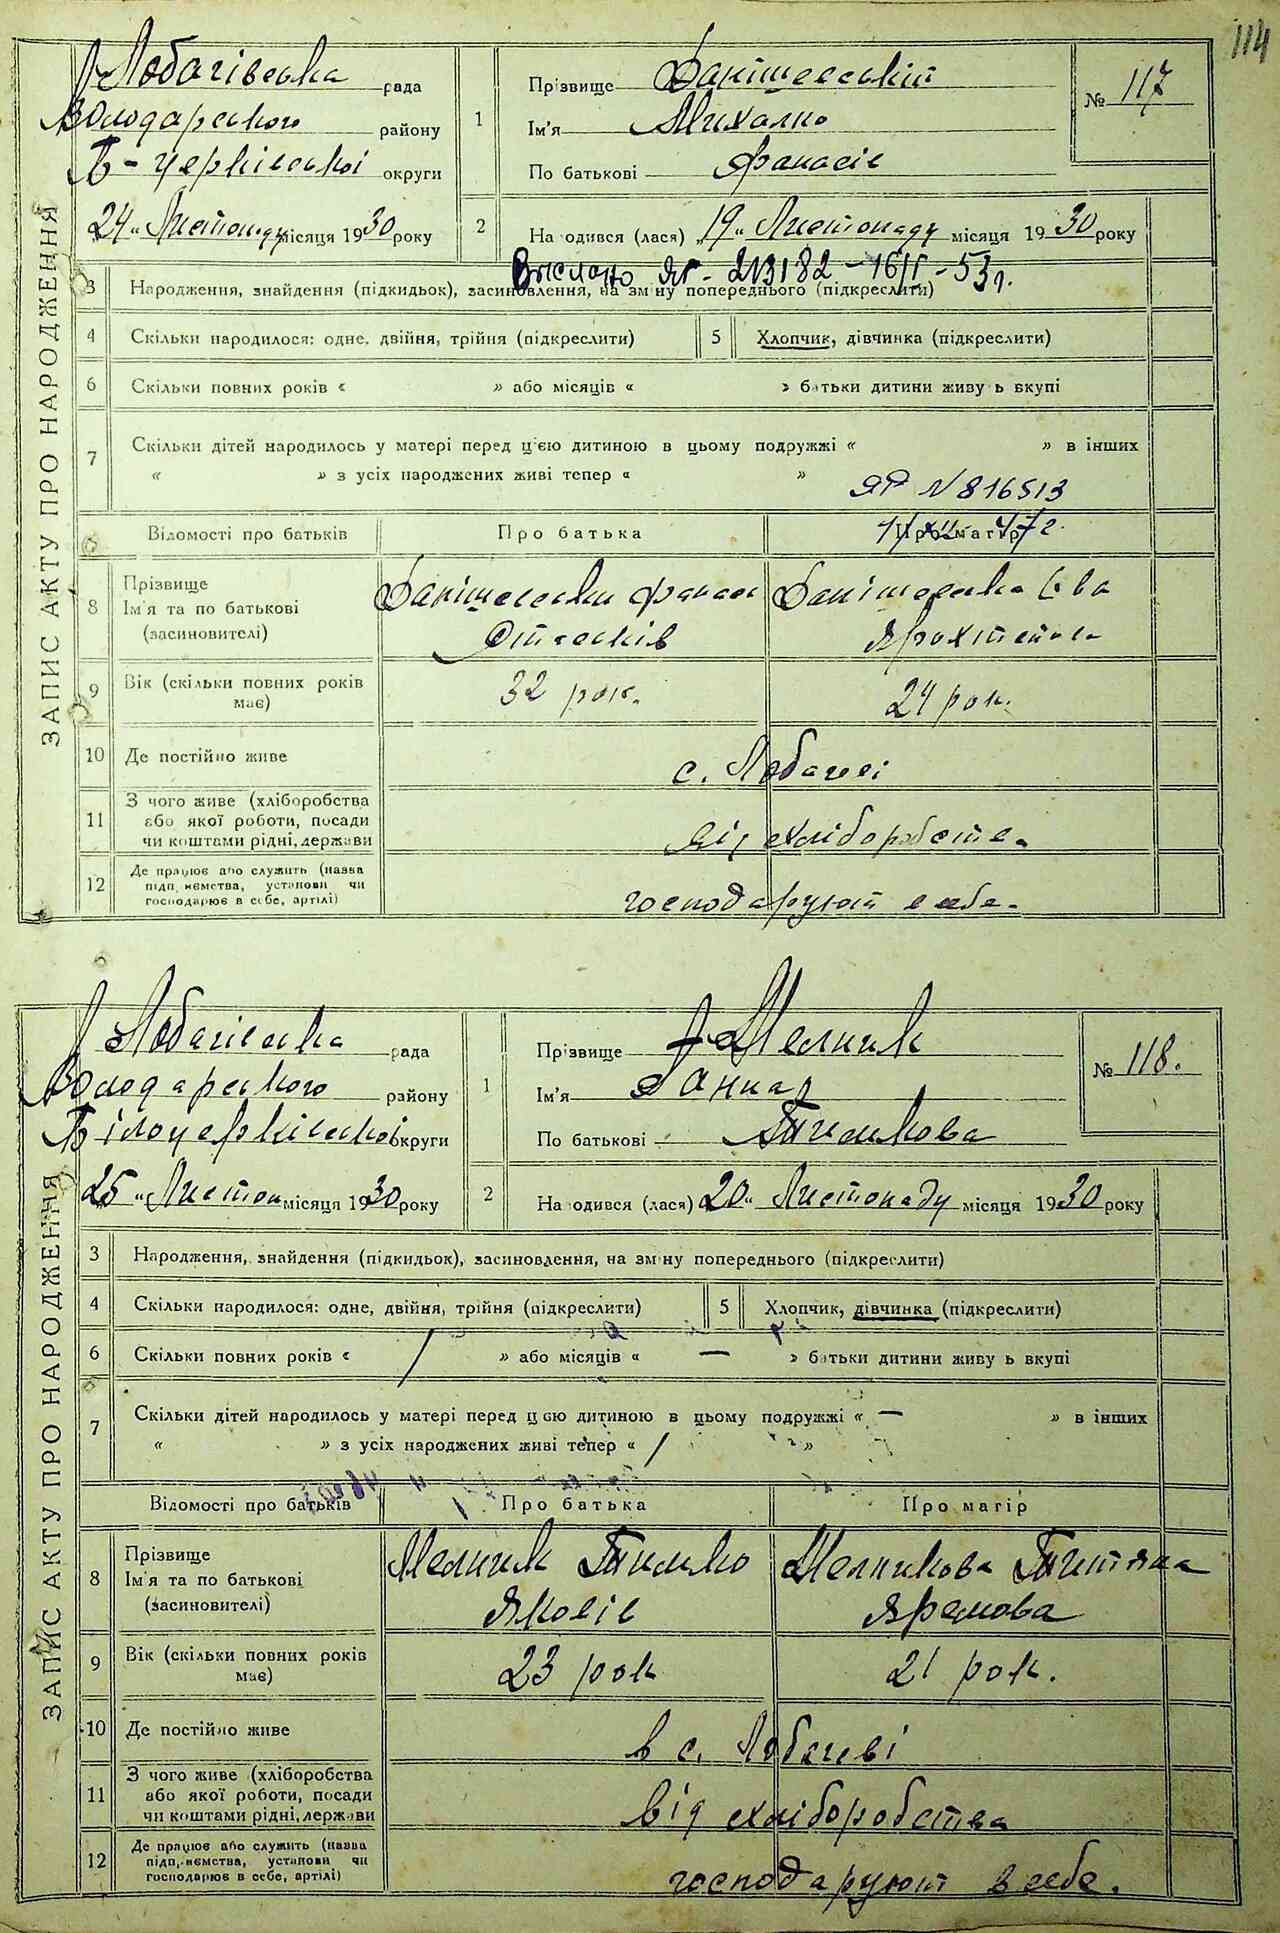 114
ЗАПИС АКТУ ПРО НАРОДЖЕННЯ
Лобачівська рада
Володарського району
Б-церківської округи
"24" Листопаду місяця 1930 року
1
Прізвище
Ім'я Михалко
По батькові Фанасів
№ 117
2
На одився (лася) "19" Листопаду місяця 1930 року
Вислано ЯГ-213182-16/II-53г.
3 Народження, знайдення (підкидьок), засиновлення, на зміну попереднього (підкреслити)
4 Скільки народилося: одне, двійня, трійня (підкреслити) 5 Хлопчик, дівчинка (підкреслити)
6 Скільки повних років « » або місяців « » батьки дитини живу ь вкупі
7 Скільки дітей народилось у матері перед цією дитиною в цьому подружжі « » в інших
« » з усіх народжених живі тепер « »
ЯР N 816513
Відомості про батьків Про батька Про матір
8 Прізвище
Ім'я та по батькові
(засиновителі)
9 Вік (скільки повних років має) 32 рок. 24 рок.
10 Де постійно живе с. Лобачеві
11 З чого живе (хліборобства або якої роботи, посади чи коштами рідні, держави від хліборобства
12 Де працює або служить (назва підп,иємства, установи чи господарює в себе, артілі) господарують в себе.
ЗАПИС АКТУ ПРО НАРОДЖЕННЯ
Лобачівська рада
Володарського району
Білоцерківської округи
"25" Листопад місяця 1930 року
1
Прізвище Мельник
Ім'я Ганна
По батькові Тимкова
№ 118.
2
На одився (лася) "20" Листопаду місяця 1930 року
3 Народження, знайдення (підкидьок), засиновлення, на зміну попереднього (підкреслити)
4 Скільки народилося: одне, двійня, трійня (підкреслити) 5 Хлопчик, дівчинка (підкреслити)
6 Скільки повних років « / » або місяців « — » батьки дитини живу ь вкупі
7 Скільки дітей народилось у матері перед цією дитиною в цьому подружжі « — » в інших
« » з усіх народжених живі тепер « / »
Відомості про батьків Про батька Про матір
8 Прізвище Мельник Тимко Мельникова Титяна
Ім'я та по батькові Яковів Яремова
(засиновителі)
9 Вік (скільки повних років має) 23 рок 21 рок.
10 Де постійно живе в с. Лобачеві
11 З чого живе (хліборобства або якої роботи, посади чи коштами рідні, держави від хліборобства
12 Де працює або служить (назва підп,иємства, установи чи господарює в себе, артілі) господарують в себе.